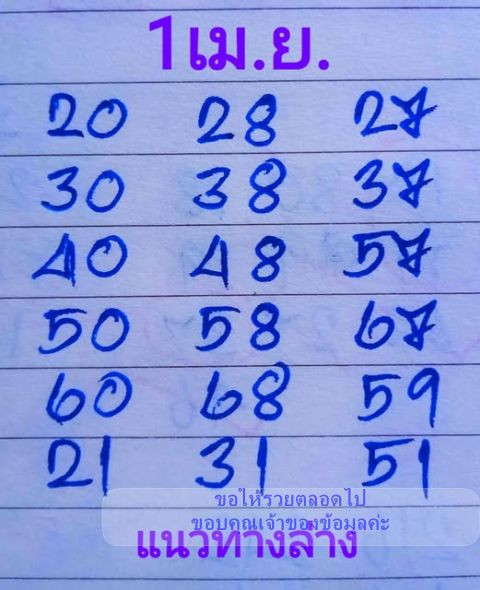 1เม.ย.
20 28 27
30 38 37
40 48 57
50 58 67
60 68 59
21 31 51
ขอให้รวยตลอดไป
ขอบคุณเจ้าของข้อมูลค่ะ
แนวทางล่าง